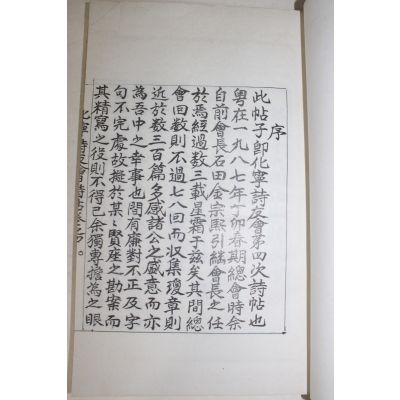 序
此帖子即化寧詩友會第四次詩帖也
粤在一九八七年丁卯春期總會時余
自前會長石田金宗熙引繼會長之任
於焉經過數三載星霜于兹矣其間總
會回數則不過七八回而収集瓊章則
近於數三百篇多感諸公之盛意而亦
為吾中之幸事也間有廉對不正及字
句不完處故擬於某〻賢座之勘案而
其精寫之役則不得已余獨專擔為之眼
化寧詩友會詩帖